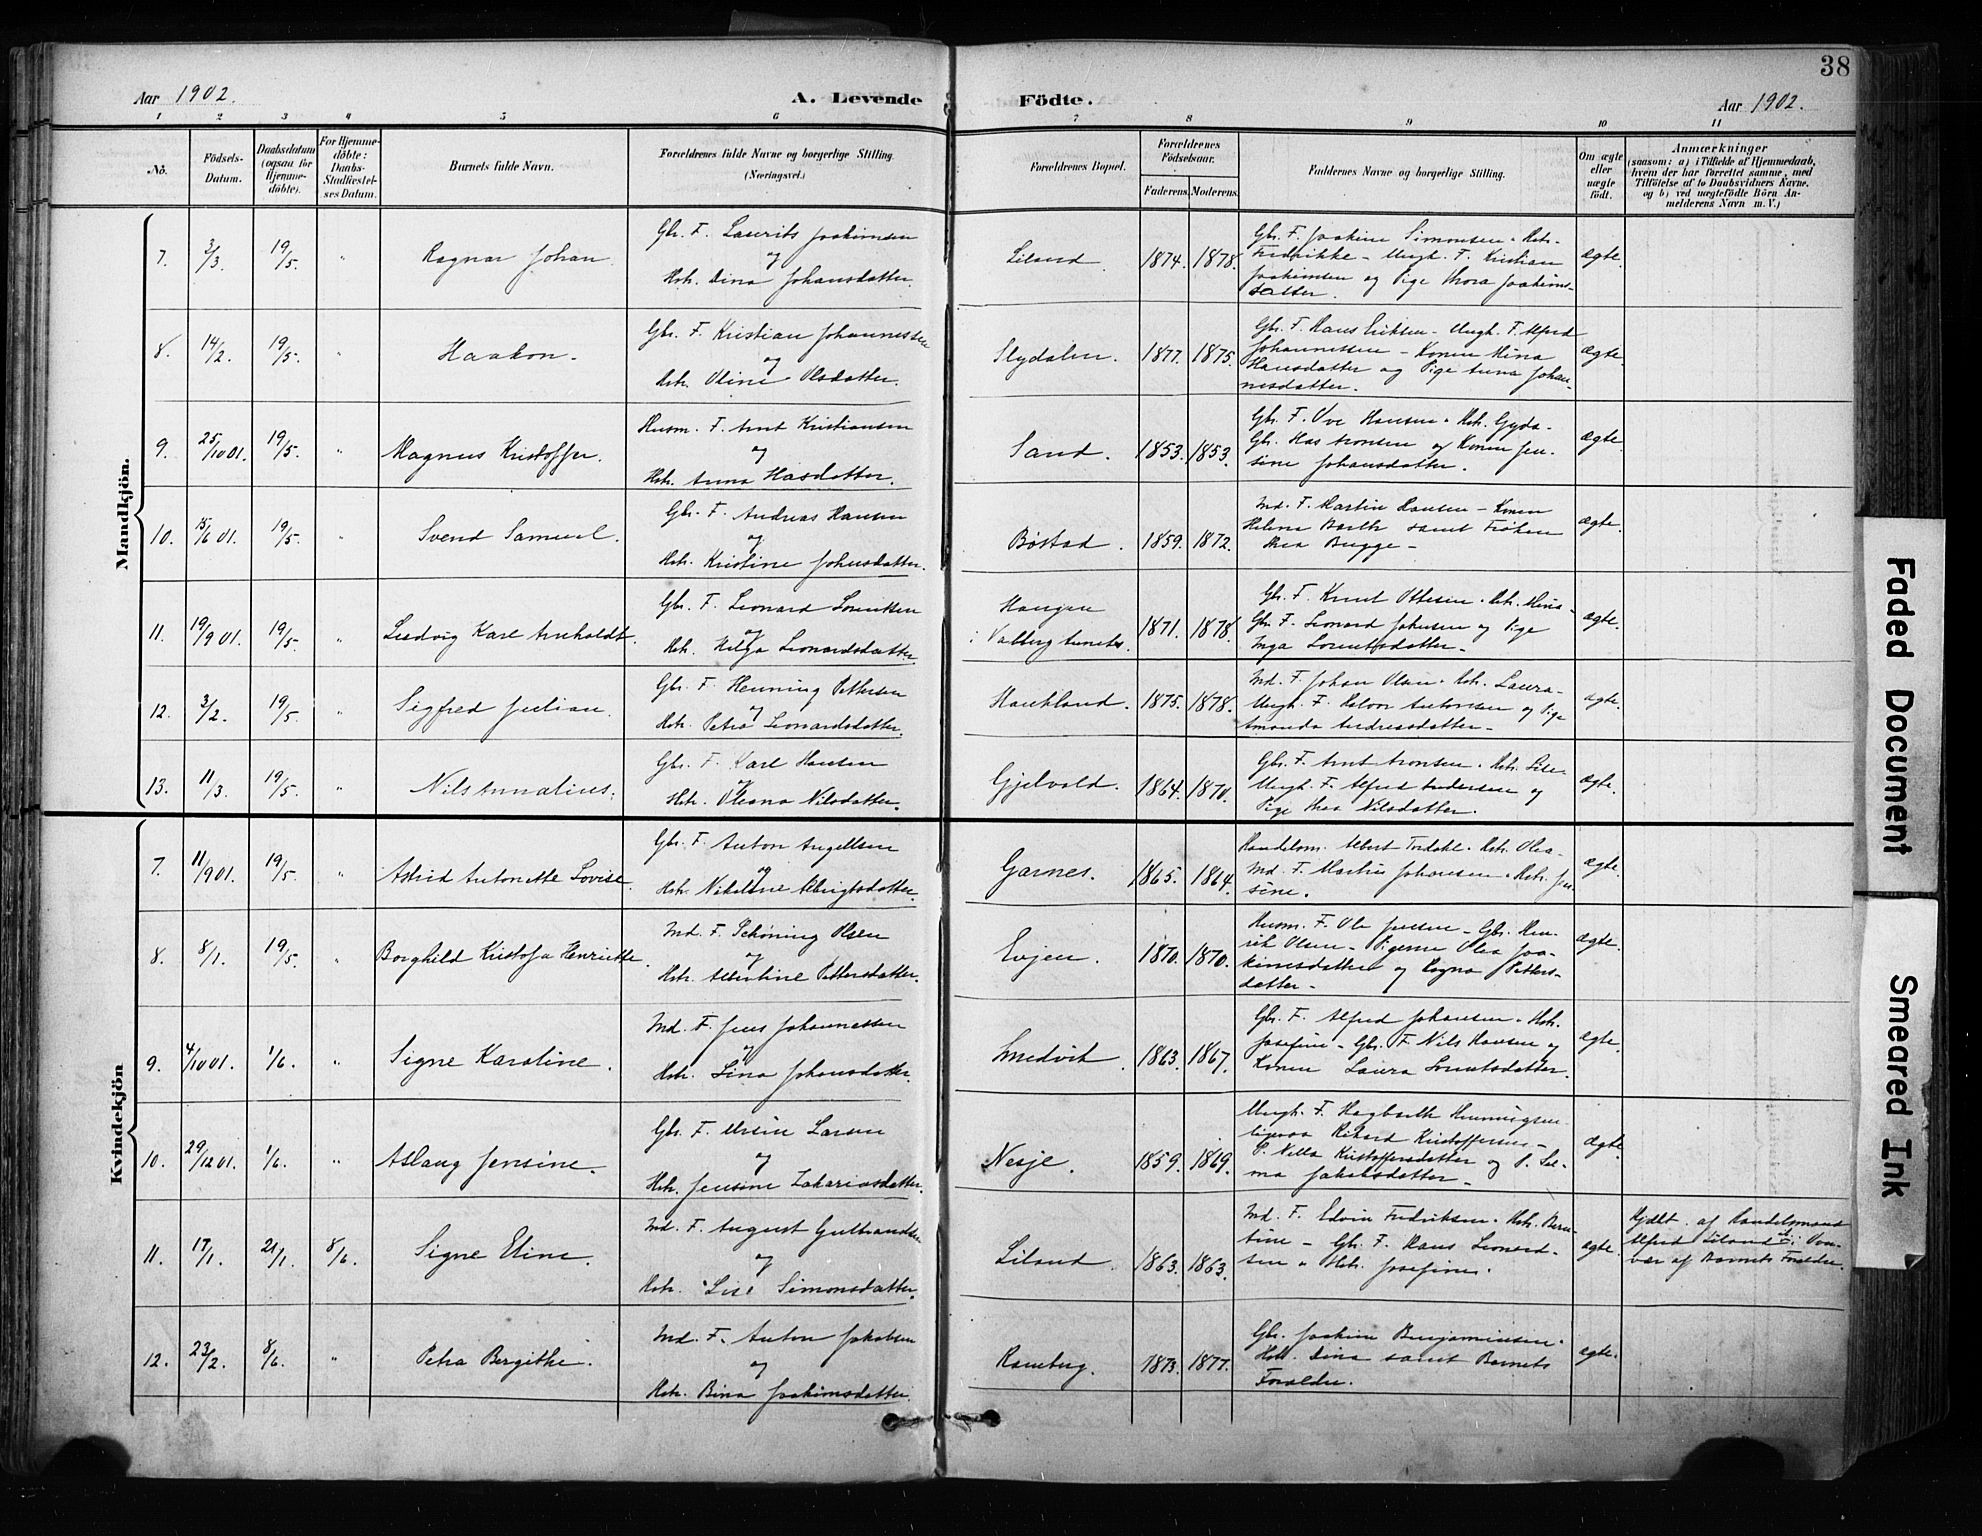 38
Aar 1902. A. Levende Födte. Aar 1902.
1 2 3 4 5 6 7 8 9 10 11
No. Födsels-Datum. Daabsdatum (ogsaa for Hjemme-döbte). For Hjemme-döbte: Daabs-Stadfæstel-ses Datum. Barnets fulde Navn. Forældrenes fulde Navne og borgerlige Stilling. (Næringsvei.) Forældrenes Bopæl. Forældrenes Födselsaar. Faderens. Moderens. Faddernes Navne og borgerlige Stilling. Om ægte eller uægte födt. Anmærkninger (saasom: a) i Tilfælde af Hjemmedaab, hvem der har forrettet samme, med Tilföielse af to Daabsvidners Navne, og b) ved uægtefödte Börn An-melderens Navn m. V.)
Mandkjön.
7. 3/3. 19/5. " Ragnar Johan. Gbr. F. Laurits Joakimsen og Hstr. Dina Johansdatter. Liland. 1874. 1878. Gbr. F. Joakim Simonsen. Hstr. Fredrikke - Ungk. F. Kristian Joakimsen og Pige Thora Joakims-datter. ægte.
8. 14/2. 19/5. " Haakon. Gbr. F. Kristian Johannessen og Hstr. Oline Olsdatter. Slydalen. 1877. 1875. Gbr. F. Hans Eriksen - Ungk. F. Alfred Johannessen - Konen Mina Hansdatter og Pige Anna Johan-nesdatter. ægte
9. 25/10 01. 19/5. " Magnus Kristoffer. Husm. F. Arnt Kristiansen og Hstr. Anna Hasdatter. Sand. 1853. 1853. Gbr. F. Ove Hansen. Hstr. Gyda. Gbr. Has Aronsen og Konen Jen-sine Johansdatter. ægte
10. 15/6 01. 19/5. " Svend Samuel. Gbr. F. Andreas Hansen og Hstr. Kristine Johnsdatter. Bøstad. 1859. 1872. Md. F. Martin Hansen - Konen Helena Barth samt Frøken Thea Bugge - ægte.
11. 19/9 01. 19/5. " Ludvig Karl Arnholdt. Gbr. F. Leonard Lorentsen og Hstr. Helga Leonardsdatter. Haugen i Valberg Anneks. 1871. 1878. Gbr. F. Knut Ottesen. Hstr. Mina - Gbr. F. Leonard Johnsen og Pige Inga Lorentsdatter - ægte.
12. 3/2. 19/5. " Sigfred Julian. Gbr. F. Henning Pettersen og Hstr. Petra Leonardsdatter. Haukland. 1875. 1878. Md. F. Johan Olsen. Hstr. Laura - Ungk. F. Halvor Antonsen og Pige Amanda Andreasdatter - ægte.
13. 11/3. 19/5. " Nils Annatius. Gbr. F. Karl Hansen og Hstr. Oleana Nilsdatter. Gjelvold. 1864. 1870. Gbr. F. Arnt Aronsen. Hstr. Lise - Ungk. F. Alfred Andersen og Pige Thea Nilsdatter. ægte.
Kvindekjön
7. 11/9 01. 19/5. " Astrid Antonette Lovise. Gbr. F. Anton Angellsen og Hstr. Nikoline Albrigtsdatter. Garnes. 1865. 1864. Handelsm. Albert Tredahl. Hstr. Olea - Md. F. Martin Johansen. Hstr. Jen-sine. ægte.
8. 8/1. 19/5. " Borghild Kristofa Henriette. Md. F. Schöning Olsen og Hstr. Albertine Pettersdatter. Evjen. 1870. 1870. Husm. F. Ole Jensen - Gbr. Hen-rik Olsen - Pigerne Olea Joa-kimsdatter og Ragna Petters-datter - ægte.
9. 4/10 01. 1/6. " Signe Karoline. Md. F. Jens Johannessen og Hstr. Lina Johansdatter. Smedvik. 1863. 1867. Gbr. F. Alfred Johansen. Hstr. Josefine - Gbr. F. Nils Hansen og Konen Laura Lorentsdatter. ægte.
10. 29/12 01. 1/6. " Aslaug Jensine. Gbr. F. Ursin Larsen og Hstr. Jensine Zakariasdatter. Nesje. 1859. 1869. Ungk. F. Hagbarth Henningsen ligesaa Rikard Kristoffersen - P. Nilla Kristoffersdatter og P. Sel-ma Jakobsdatter - ægte.
11. 17/1. 21/1. 8/6. Signe Eline. Md. F. August Gulbrandsen og Hstr. Lise Simonsdatter. Liland. 1863. 1863. Md. F. Edvin Fredriksen. Hstr. Bern-tine - Gbr. F. Hans Leonard-sen. Hstr. Josefine. ægte. Hjdbt. af Handelsmand Alfred Liland i Over-vær af Barnets Forældre.
12. 23/2. 8/6. " Petra Bergithe. Md. F. Anton Jakobsen og Hstr. Bina Joakimsdatter. Ramberg. 1873. 1877. Gbr. Joakim Benjaminsen. Hstr. Dina samt Barnets Forældre. ægte.
Faded Document
Smeared Ink